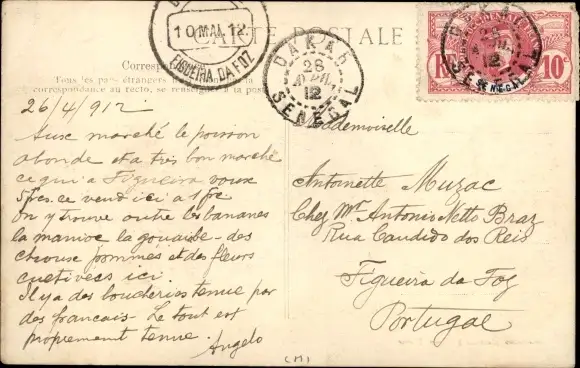 CARTE POSTALE
10 MAI. 12.
FIGUEIRA DA FOZ
DAKAR
28
AVRIL
12
SENEGAL
DAKAR
28
12
SENEGAL
10 c
Correspon
Tous les pays étrangers
correspondance au recto, se renseigner à la poste
26/4/912
Aux marché le poisson
abonde et a très bon marché
ce qui a Figueira vaux
5 frcs. ce vend ici a 1 fc
On y trouve outre les bananes
la manioc la gouaibe - des
chouse pommés et des fleurs
cuetivees ici.
Il y a des boucheries tenue par
des francais. Le tout est
proprement tenue.
Angelo
Mademoiselle
Antoinette Muzac
Chez Mr. Antonio Netto Braz
Rua Candido dos Reis
Figueira da Foz
Portugal
(M)